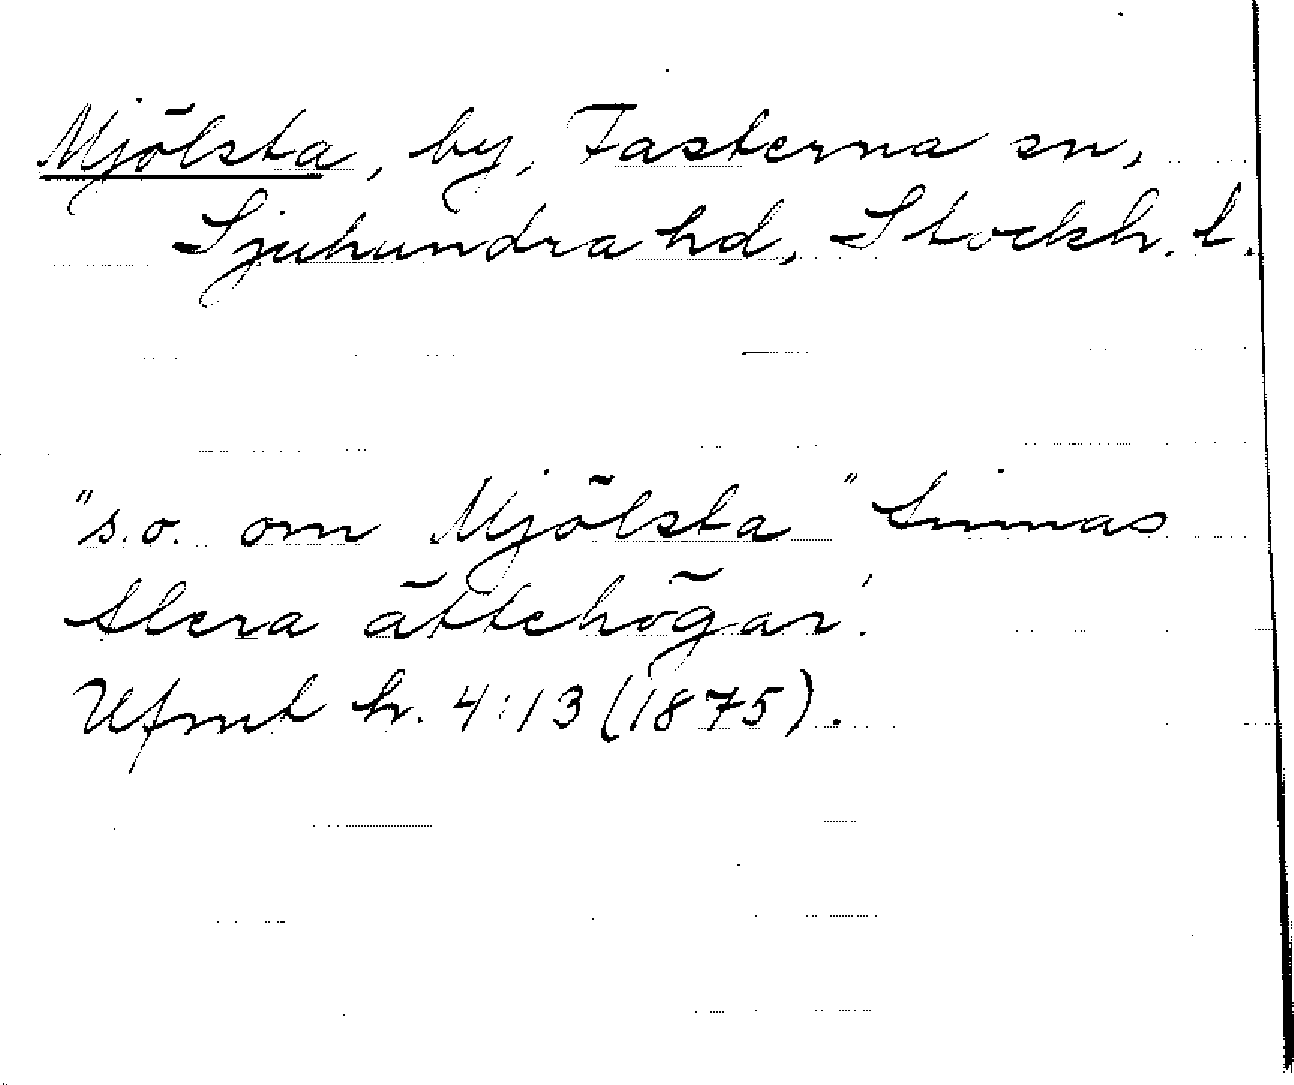 Mjölsta, by, Fasterna sn,
Sjuhundra hd, Stockh. l.
"s.o. om Mjölsta" finnas
flera ättehögar'.
Ufmt h. 4:13 (1875).